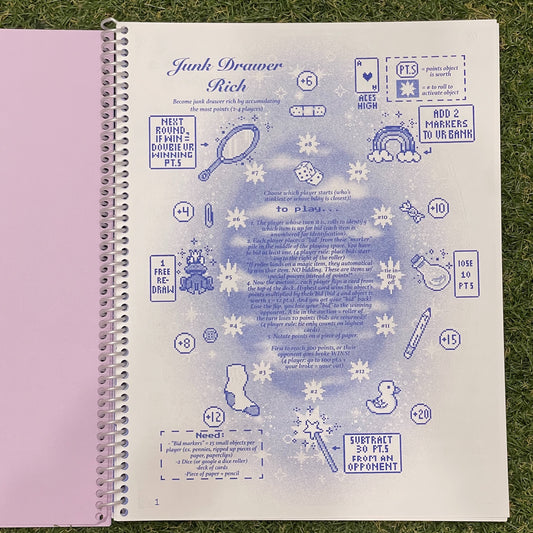 Junk Drawer
Rich
Become junk drawer rich by accumulating
the most points (2-4 players)
+6
A
ACES
HIGH
PT.S
= points object
is worth
= # to roll to
activate object
NEXT
ROUND,
IF WIN =
DOUBLE UR
WINNING
PT.S
ADD 2
MARKERS
TO UR BANK
+4
+10
1
FREE
RE-
DRAW
LOSE
10
PT.S
+8
+15
+12
+20
SUBTRACT
30 PT.S
FROM AN
OPPONENT
Choose which player starts (who's
stinkiest or whose bday is closest)!
to play...
1. The player whose turn it is, rolls to identify
which item is up for bid (each item is
numbered for identification).
2. Each player places a "bid" from their "marker"
pile in the middle of the playing space. You have
to bid at least one. (4 player rule: place bids start-
ing to the right of the roller)
roller lands on a magic item, they automatical
win that item. NO bidding. These are items w/
special powers instead of points!
4. Now the auction... each player flips a card from
the top of the deck. Highest card wins the object's
points multiplied by their bid
And you get your "bid" back!
Lose the flip, you lose your "bid" to the winning
opponent. A tie in the auction = roller of
the turn loses 10 points (bids are returned)!
(4 player rule: tie only counts on highest
cards)
5. Notate points on a piece of paper.
First to reach 300 points, or their
opponent goes broke WINS!
#10
#5
#4
#11
#12
#2
tie in
flip
Need:
"Bid markers" = 15 small objects per
player (ex. pennies, ripped up pieces of
paper, paperclips)
-2 Dice (or google a dice roller)
-deck of cards
-Piece of paper + pencil
1